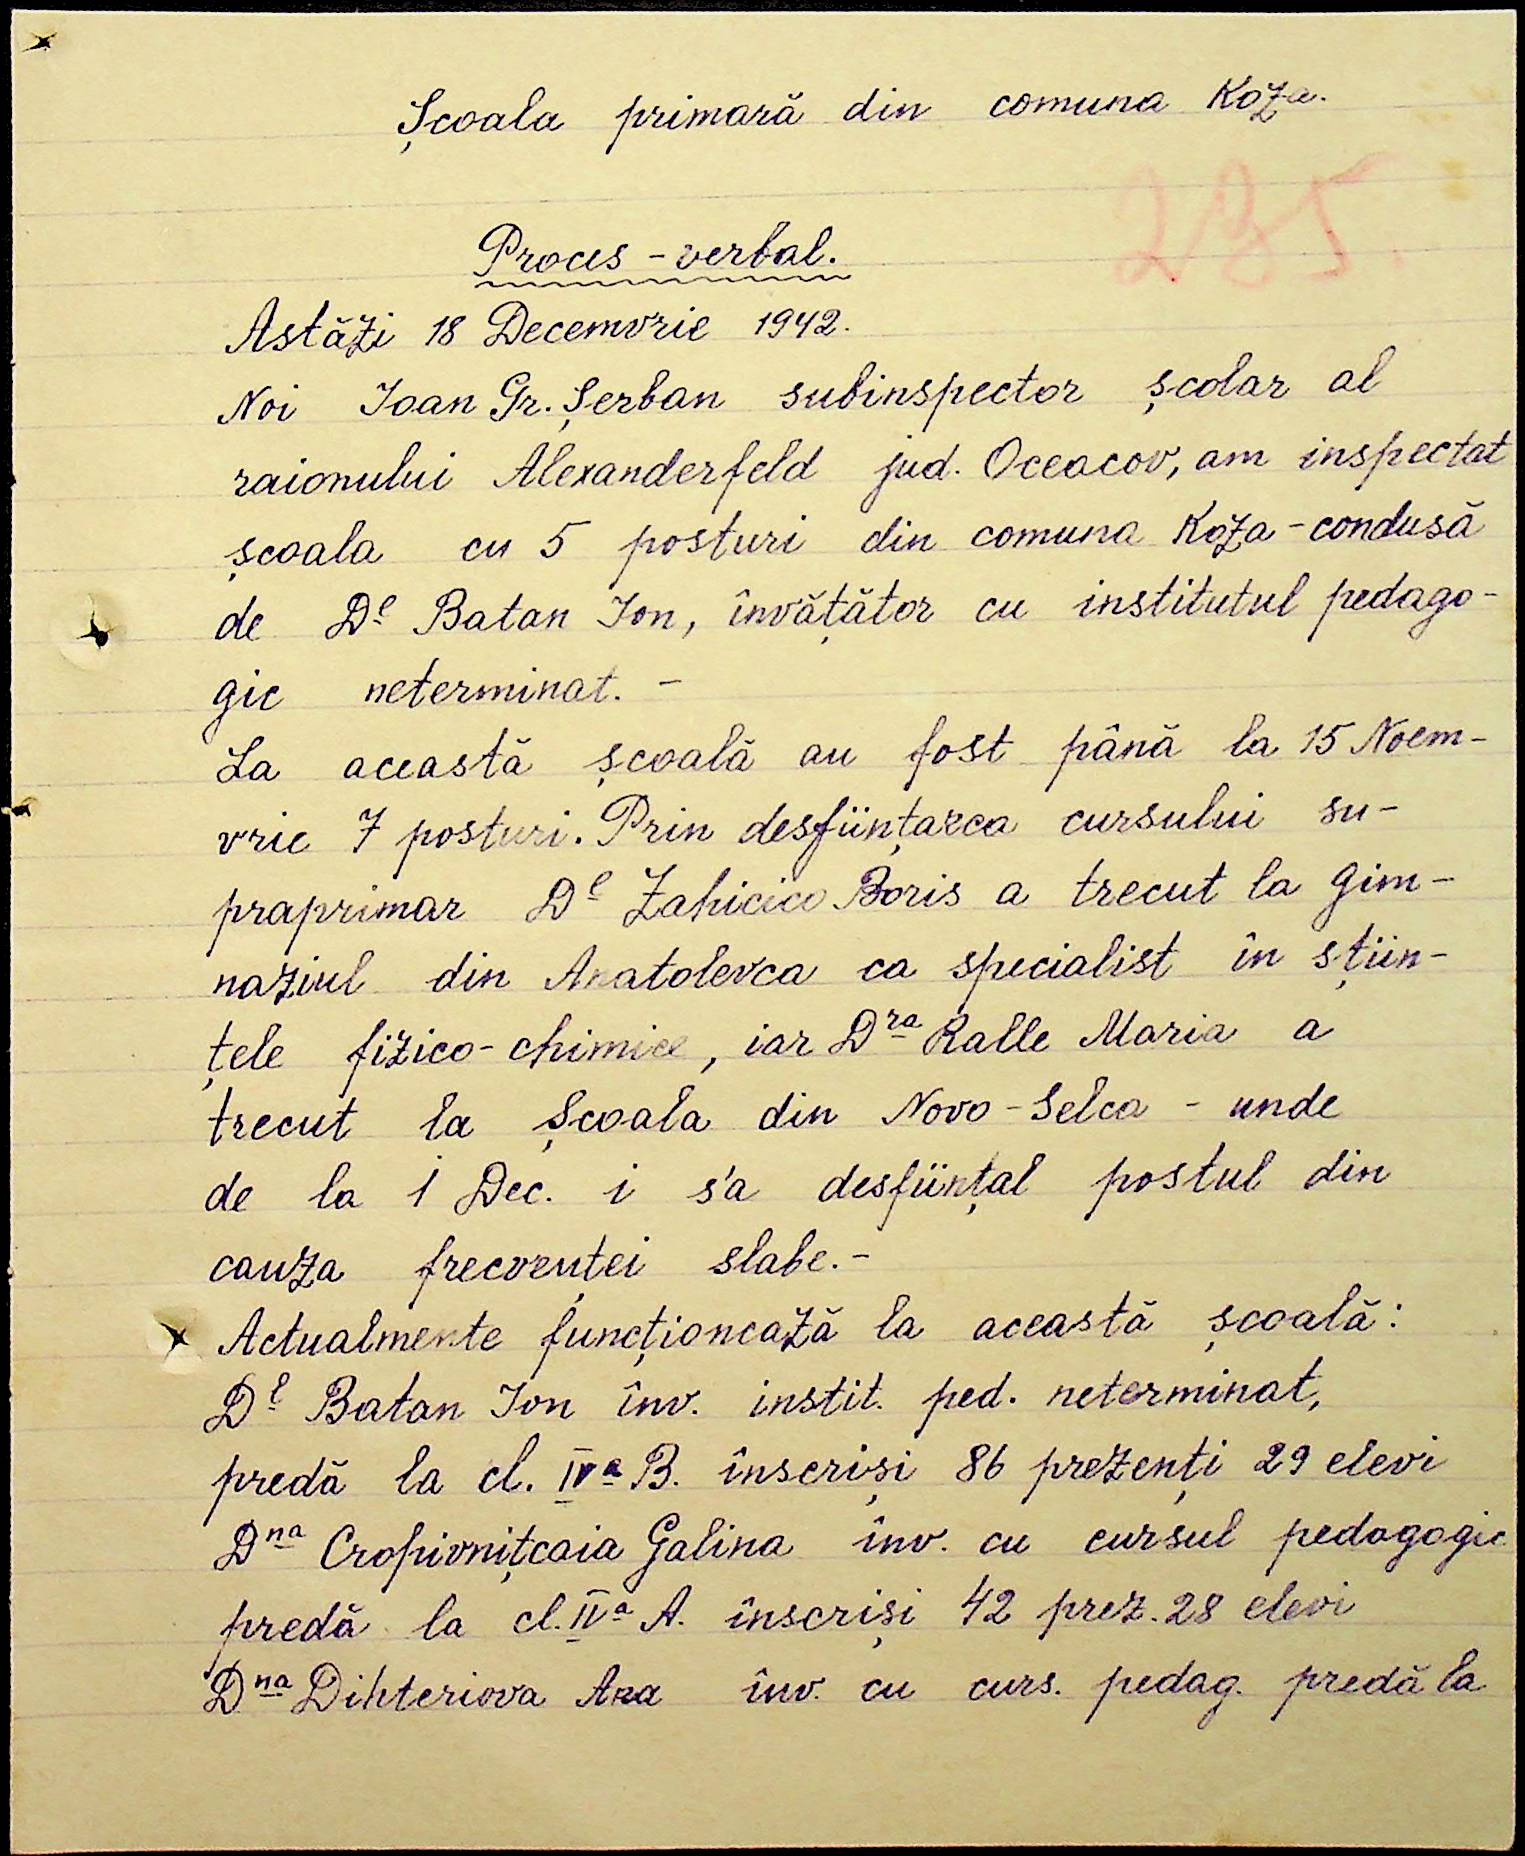 Școala primară din comuna Koza.
285.
Proces-verbal.
Astăzi 18 Decemvrie 1942.
Noi Ioan Gr. Șerban subinspector școlar al
raionului Alexanderfeld jud. Oceacov, am inspectat
școala cu 5 posturi din comuna Koza - condusă
de Dl Batan Ion, învățător cu institutul pedago-
gic neterminat. -
La această școală au fost până la 15 Noem-
vrie 7 posturi. Prin desființarea cursului su-
praprimar Dl Zahicico Boris a trecut la gim-
naziul din Anatolevca ca specialist în știin-
țele fizico-chimice, iar Dra Ralle Maria a
trecut la Școala din Novo-Selca - unde
de la 1 Dec. i s'a desființat postul din
cauza frecvenței slabe. -
Actualmente funcționează la această școală:
Dl Batan Ion înv. instit. ped. neterminat,
predă la cl. IVa B. înscriși 86 prezenți 29 elevi
Dna Cropivnițcaia Galina înv. cu cursul pedagogic
predă la cl. IVa A. înscriși 42 prez. 28 elevi
Dna Dihteriova Ana înv. cu curs. pedag. predă la